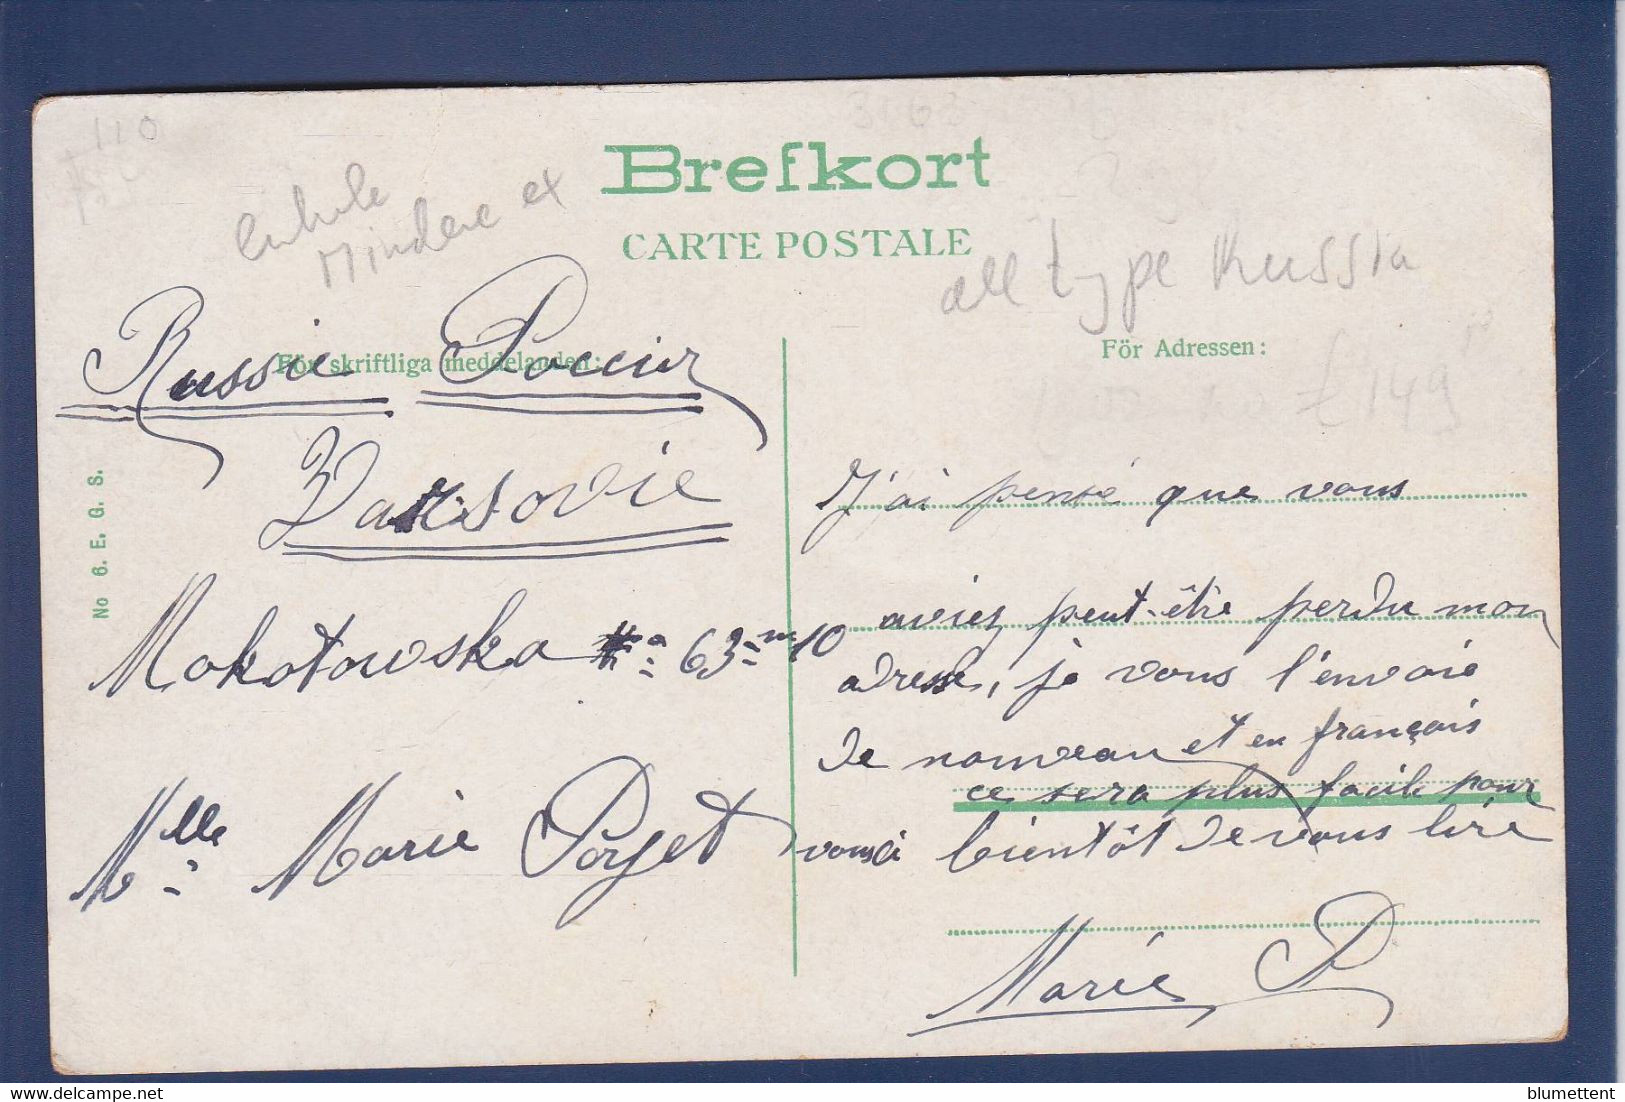 110
Brefkort
CARTE POSTALE
Mindere ex
all type Russia
£ 149
För skriftliga meddelanden:
För Adressen:
Russie
Varsovie
Mokotowska 63 m 10
Mlle Marie Porget
No 6. E. G. S.
J'ai pensé que vous
aviez peut-être perdu mon
adresse, je vous l'envoie
de nouveau et en français
ce sera plus facile pour
vous à bientôt de vous lire
Marie P
blumettent